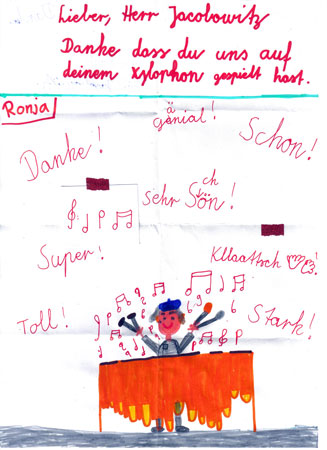 Lieber, Herr Jacobowitz
Danke dass du uns auf
deinem Xylophon gespielt hast.
Ronja
Danke!
genial!
Schon!
sehr Schön!
Super!
Kllaattsch
Toll!
Stark!